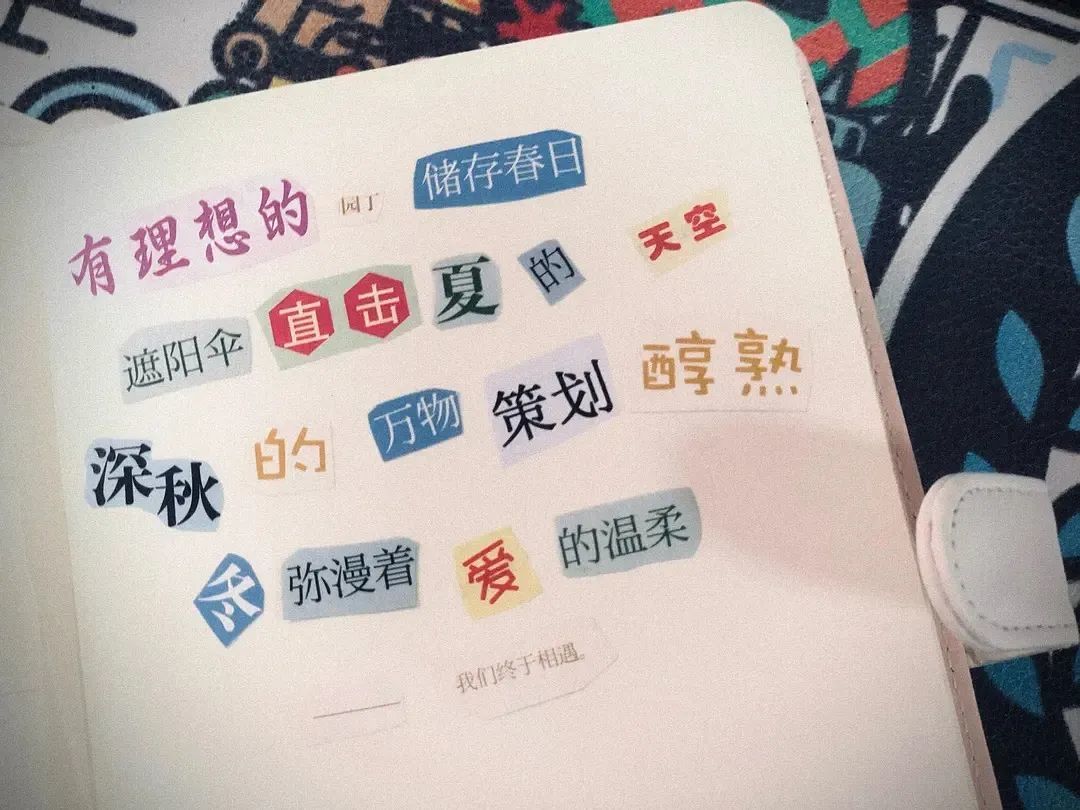 有理想的园丁储存春日
遮阳伞直击夏的天空
深秋的万物策划醇熟
冬弥漫着爱的温柔
——我们终于相遇。